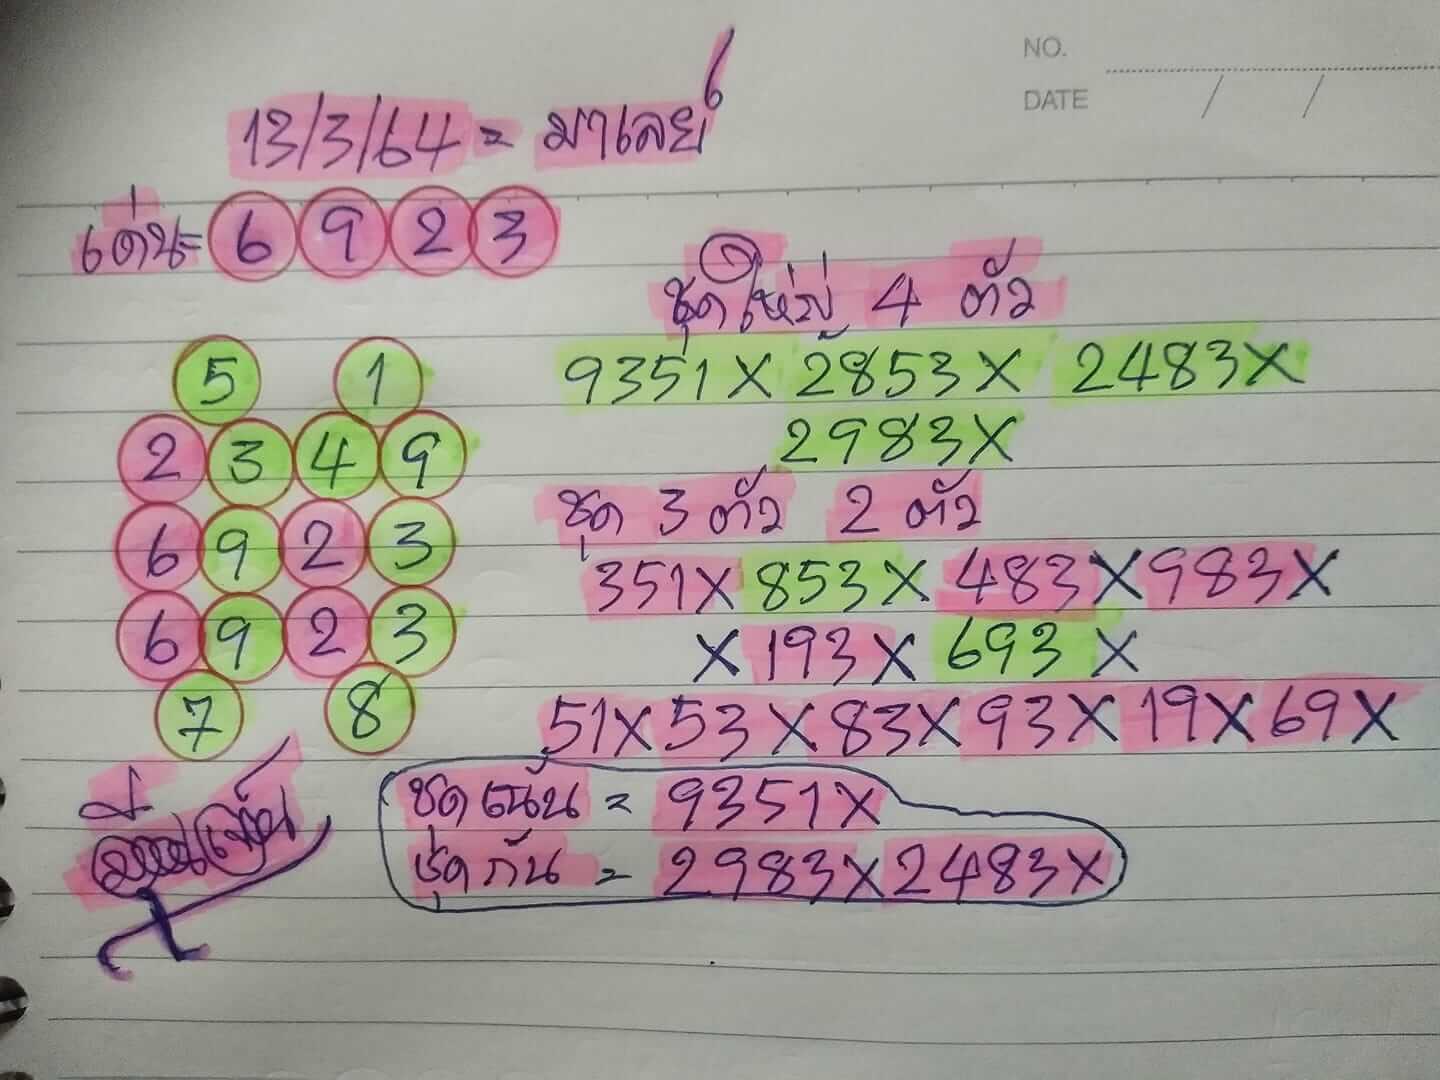 NO.
DATE / /
13/3/64 = มาเลย์
เด่น = 6 9 2 3
ชุดใหญ่ 4 ตัว
5 1
9351X 2853X 2483X
2983X
2 3 4 9
ชุด 3 ตัว 2 ตัว
6 9 2 3
351X 853X 483X 983X
6 9 2 3
X 193X 693X
7 8
51X 53X 83X 93X 19X 69X
ชุดเน้น = 9351X
ชุดกัน = 2983X 2483X